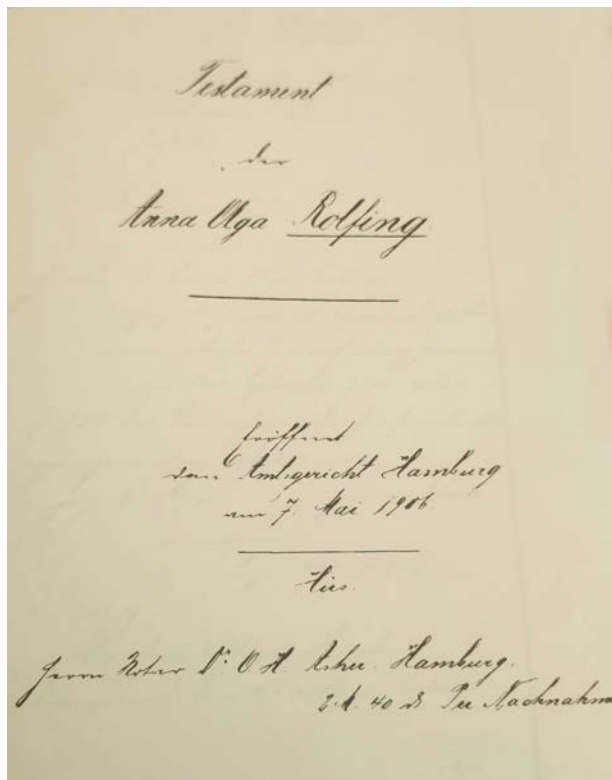 Testament
der
Anna Olga Rolfing
Eröffnet
vom Amtsgericht Hamburg
am 7. Mai 1906
Herrn Notar Dr. O. H. Asher Hamburg.
40 Per Nachnahme